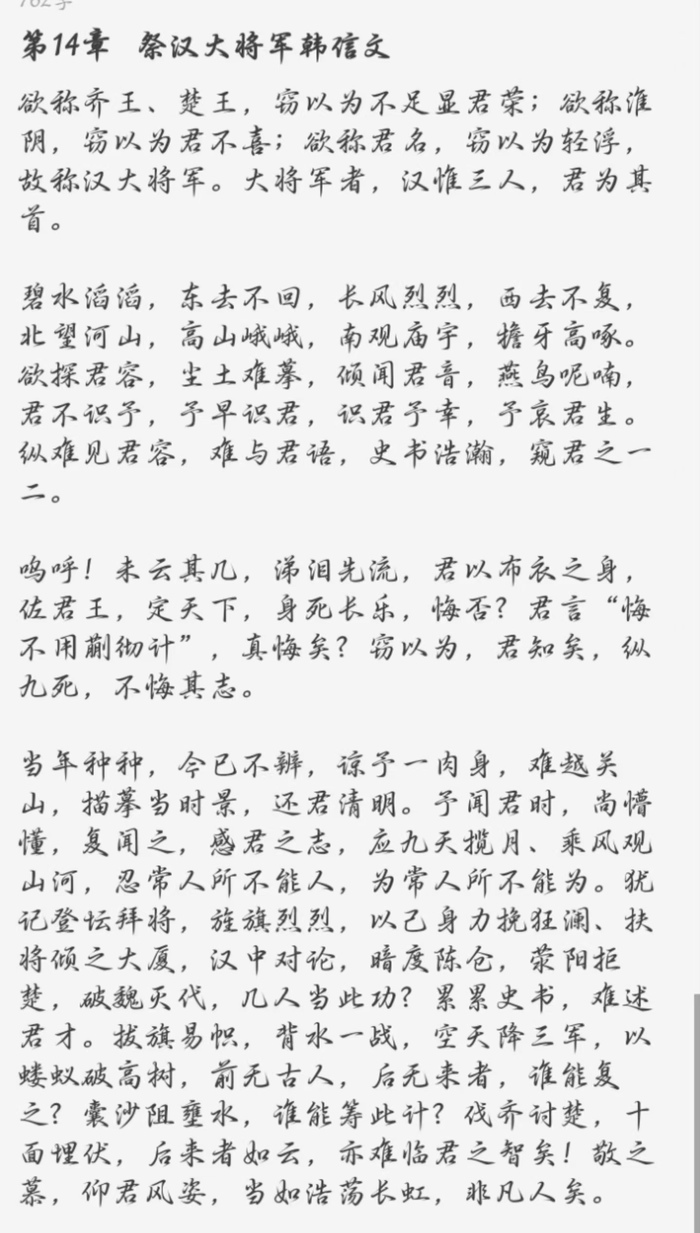 762字
第14章 祭汉大将军韩信文
欲称齐王、楚王，窃以为不足显君荣；欲称淮
阴，窃以为君不喜；欲称君名，窃以为轻浮，
故称汉大将军。大将军者，汉惟三人，君为其
首。
碧水滔滔，东去不回，长风烈烈，西去不复，
北望河山，高山峨峨，南观庙宇，擔牙高啄。
欲探君容，尘土难摹，倾闻君音，燕鸟呢喃，
君不识予，予早识君，识君予幸，予哀君生。
纵难见君容，难与君语，史书浩瀚，窥君之一
二。
呜呼！未云其几，涕泪先流，君以布衣之身，
佐君王，定天下，身死长乐，悔否？君言“悔
不用蒯彻计”，真悔矣？窃以为，君知矣，纵
九死，不悔其志。
当年种种，今已不辨，谅予一肉身，难越关
山，描摹当时景，还君清明。予闻君时，尚懵
懂，复闻之，感君之志，应九天揽月、乘风观
山河，忍常人所不能人，为常人所不能为。犹
记登坛拜将，旌旗烈烈，以己身力挽狂澜、扶
将倾之大厦，汉中对论，暗度陈仓，荥阳拒
楚，破魏灭代，几人当此功？累累史书，难述
君才。拔旗易帜，背水一战，空天降三军，以
蝼蚁破高树，前无古人，后无来者，谁能复
之？囊沙阻壅水，谁能筹此计？伐齐讨楚，十
面埋伏，后来者如云，亦难临君之智矣！敬之
慕，仰君风姿，当如浩荡长虹，非凡人矣。